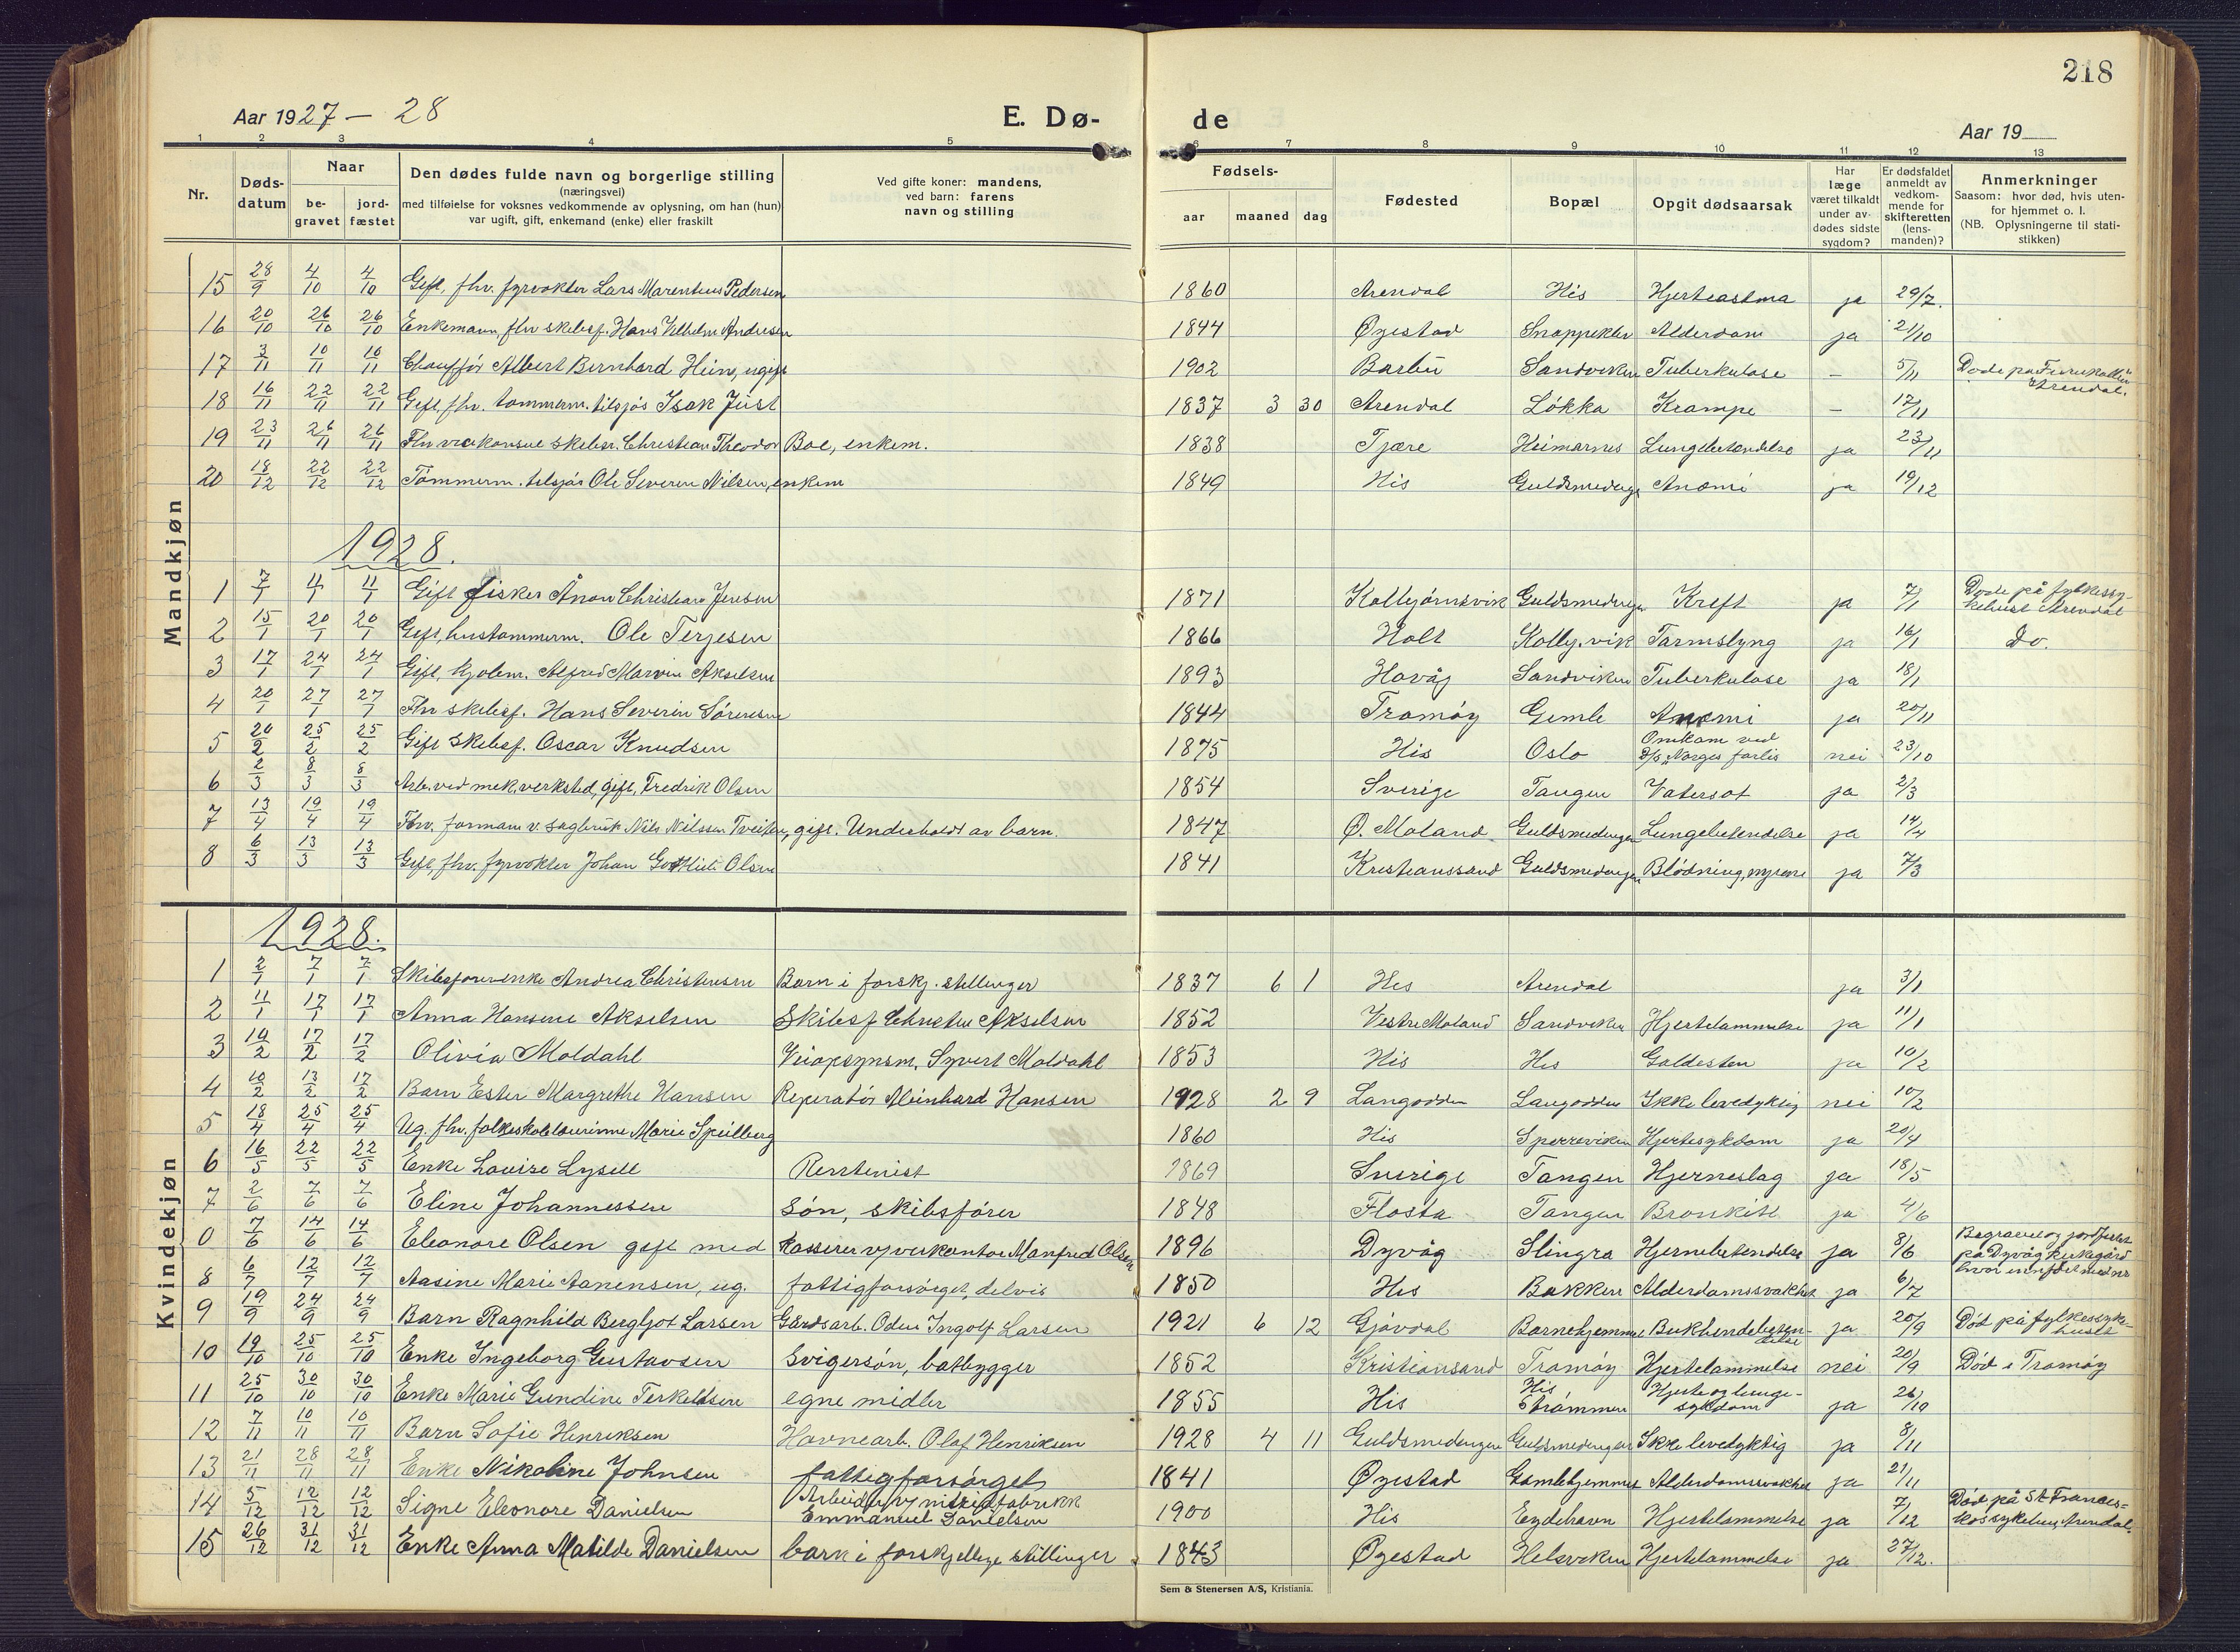 218
Aar 1927 – 28
E. Dø-
de
Aar 19
1 2 3 4 5 6 7 8 9 10 11 12 13
Nr.
Døds-
datum
Naar
be-
gravet
jord-
fæstet
Den dødes fulde navn og borgerlige stilling
(næringsvei)
med tilføielse for voksnes vedkommende av oplysning, om han (hun)
var ugift, gift, enkemand (enke) eller fraskilt
Ved gifte koner: mandens,
ved barn: farens
navn og stilling
Fødsels-
aar maaned dag
Fødested
Bopæl
Opgit dødsaarsak
Har
læge
været tilkaldt
under av-
dødes sidste
sygdom?
Er dødsfaldet
anmeldt av
vedkom-
mende for
skifteretten
(lens-
manden)?
Anmerkninger
Saasom: hvor død, hvis uten-
for hjemmet o. l.
(NB. Oplysningerne til stati-
stikken)
Mandkjøn
15 28/9 4/10 4/10 Gift, fhv. fyrvokter Lars Marentius Pedersen 1860 Arendal His Hjerteastma ja 29/7.
16 20/10 26/10 26/10 Enkemann, fhv skibsf. Hans Vilhelm Andresen 1844 Øyestad Alderdom ja 21/10
17 3/11 10/11 10/11 Chauffør Albert Bernhard Hein, ugift 1902 Barbu Sandviken Tuberkulose – 5/11 Døde på
Arendal.
18 16/11 22/11 22/11 Gift, fhv. tømmerm. tilsjøs Isak Just 1837 3 30 Arendal Løkka Krampe – 17/11
19 23/11 26/11 26/11 Fhv visekonsul skibsr. Christian Theodor Boe, enkem. 1838 Tjøre Heimarnes Lungebetendelse ja 23/11
20 18/12 22/12 22/12 Tømmerm. tilsjøs Ole Severin Nilsen, enkem 1849 His Guldsmedengen Anæmi ja 19/12
1928.
1 7/1 11/1 11/1 Gift fisker Ånon Christian Jensen 1871 Kolbjørnsvik Guldsmedengen Kreft ja 7/1 Døde på fylkessy-
kehuset Arendal
2 15/1 20/1 20/1 Gift, hustømmerm. Ole Terjesen 1866 Holt Kolbj.vik Tarmslyng ja 16/1 Do.
3 17/1 24/1 24/1 Gift, Alfred Marvin Akselsen 1893 Høvåg Sandviken Tuberkulose ja 18/1
4 20/1 27/1 27/1 Fhv skibsf. Hans Severin Sørensen 1844 Tromøy Gimle Anæmi ja 20/11
5 20/2 25/2 25/2 Gift skibsf. Oscar Knudsen 1875 His Oslo Omkom ved
D/S "Norges forlis nei 23/10
6 2/3 8/3 8/3 Arb. ved mek. verksted, gift, Fredrik Olsen 1854 Sverige Tangen Vatersot ja 2/3
7 13/4 19/4 19/4 Fhv. formann v. sagbruk Nils Nilssen Tveiten, gift. Underholdt av barn. 1847 Ø. Moland Guldsmedengen Lungebetendelse ja 14/4
8 6/3 13/3 13/3 Gift, fhv. fyrvokter Johan Gotthilf Olsen 1841 Kristianssand Guldsmedengen Blødning, nyrene ja 7/3
Kvindekjøn
1928.
1 2/1 7/1 7/1 Skibsførerenke Andrea Christensen Barn i forskj. stillinger 1837 6 1 His Arendal ja 3/1
2 11/1 17/1 17/1 Anna Hansine Akselsen Skibsf Akselsen 1852 Vestre Moland Sandviken Hjertelammelse ja 11/1
3 10/2 17/2 17/2 Olivia Moldahl Veiopsynsm. Syvert Moldahl 1853 His His Galdesten ja 10/2
4 10/2 13/2 17/2 Barn Ester Margrethe Hansen Reperatør Meinhard Hansen 1928 2 9 Langodden Langodden Ikke levedyktig nei 10/2
5 18/4 25/4 25/4 Ug. fhv. folkeskolelærerinne Marie Speilberg 1860 His Sperreviken Hjertesykdom ja 20/4
6 16/5 22/5 22/5 Enke Louise Lysell Rentenist 1869 Sverige Tangen Hjerneslag ja 18/5
7 2/6 7/6 7/6 Eline Johannessen Søn, skibsfører 1848 Flosta Tangen Bronkitt ja 4/6
0 7/6 14/6 14/6 Eleonore Olsen gift med Kasserer v/ verkontor Manfred Olsen 1896 Dyvåg Slingra Hjernebetendelse ja 8/6 Begravet og jordfestet
på Dyvåg kirkegård
hvor innført med nr
8 6/7 12/7 12/7 Aasine Marie Aanensen, ug. fattigforsørget, delvis 1850 His Bakken Alderdomssvakhet ja 6/7
9 19/9 24/9 24/9 Barn Ragnhild Bergljot Larsen Gårdsarb. Oden Ingolf Larsen 1921 6 12 Gjøvdal Barnehjemmet Bukhindebeten-
delse ja 20/9 Død på fylkessyke-
huset
10 19/10 25/10 25/10 Enke Ingeborg Gustavsen Svigersøn, båtbygger 1852 Kristiansand Tromøy Hjertelammelse nei 20/9 Død i Tromøy
11 25/10 30/10 30/10 Enke Marie Gundine Terkeldsen egne midler 1855 His His
Strømmen Hjerte og lunge-
sykdom ja 26/10
12 7/11 10/11 10/11 Barn Sofie Henriksen Havnearb. Olaf Henriksen 1928 4 11 Guldsmedengen Guldsmedengen Ikke levedyktig ja 8/11
13 21/11 28/11 28/11 Enke Nikoline Johnsen fattigforsørget 1841 Øyestad Gamlehjemmet Alderdomssvakhet ja 21/11
14 5/12 12/12 12/12 Signe Eleonore Danielsen Arbeider v/ fabrikk
Emmanuel Danielsen 1900 His Eydehavn Hjertelammelse ja 7/12 Død på St. Francis-
kussykehus, Arendal.
15 26/12 31/12 31/12 Enke Anna Matilde Danielsen barn i forskjellige stillinger 1843 Øyestad Helleviken Hjertelammelse ja 27/12.
Sem & Stenersen A/S, Kristiania.